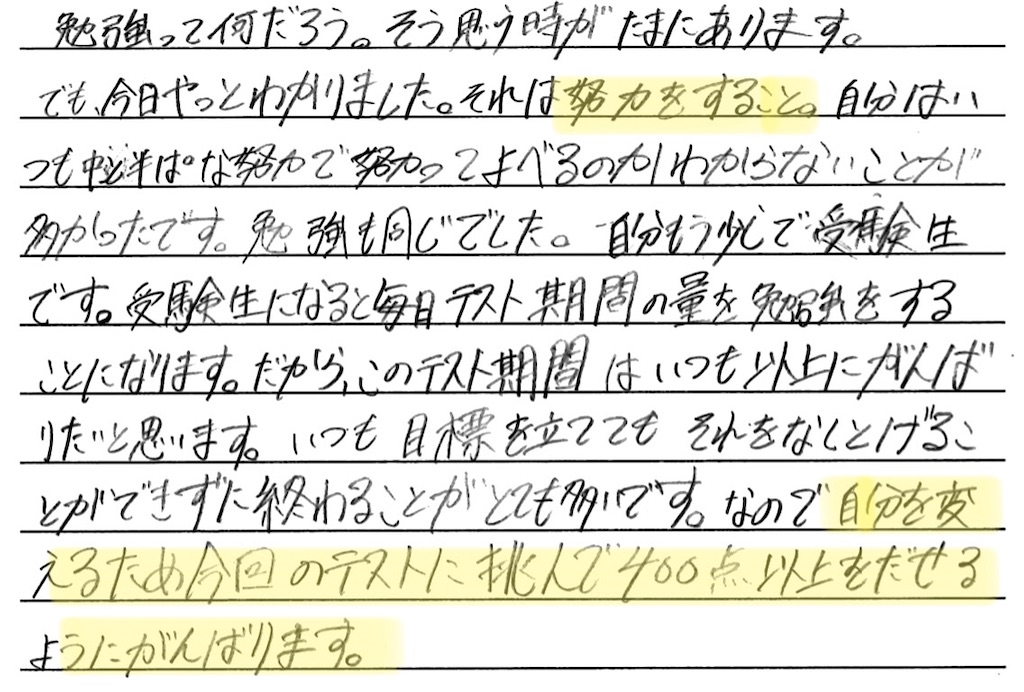 勉強って何だろう。そう思う時がたまにあります。
でも、今日やっとわかりました。それは努力をすること。自分はい
つも中途半ぱな努力で努力ってよべるのかわからないことが
多かったです。勉強も同じでした。自分もう少しで受験生
です。受験生になると毎日テスト期間の量を勉強をする
ことになります。だから、このテスト期間はいつも以上にがんば
りたいと思います。いつも目標を立ててもそれをなしとげるこ
とができずに終わることがとても多いです。なので自分を変
えるため今回のテストに挑んで400点以上をだせる
ようにがんばります。